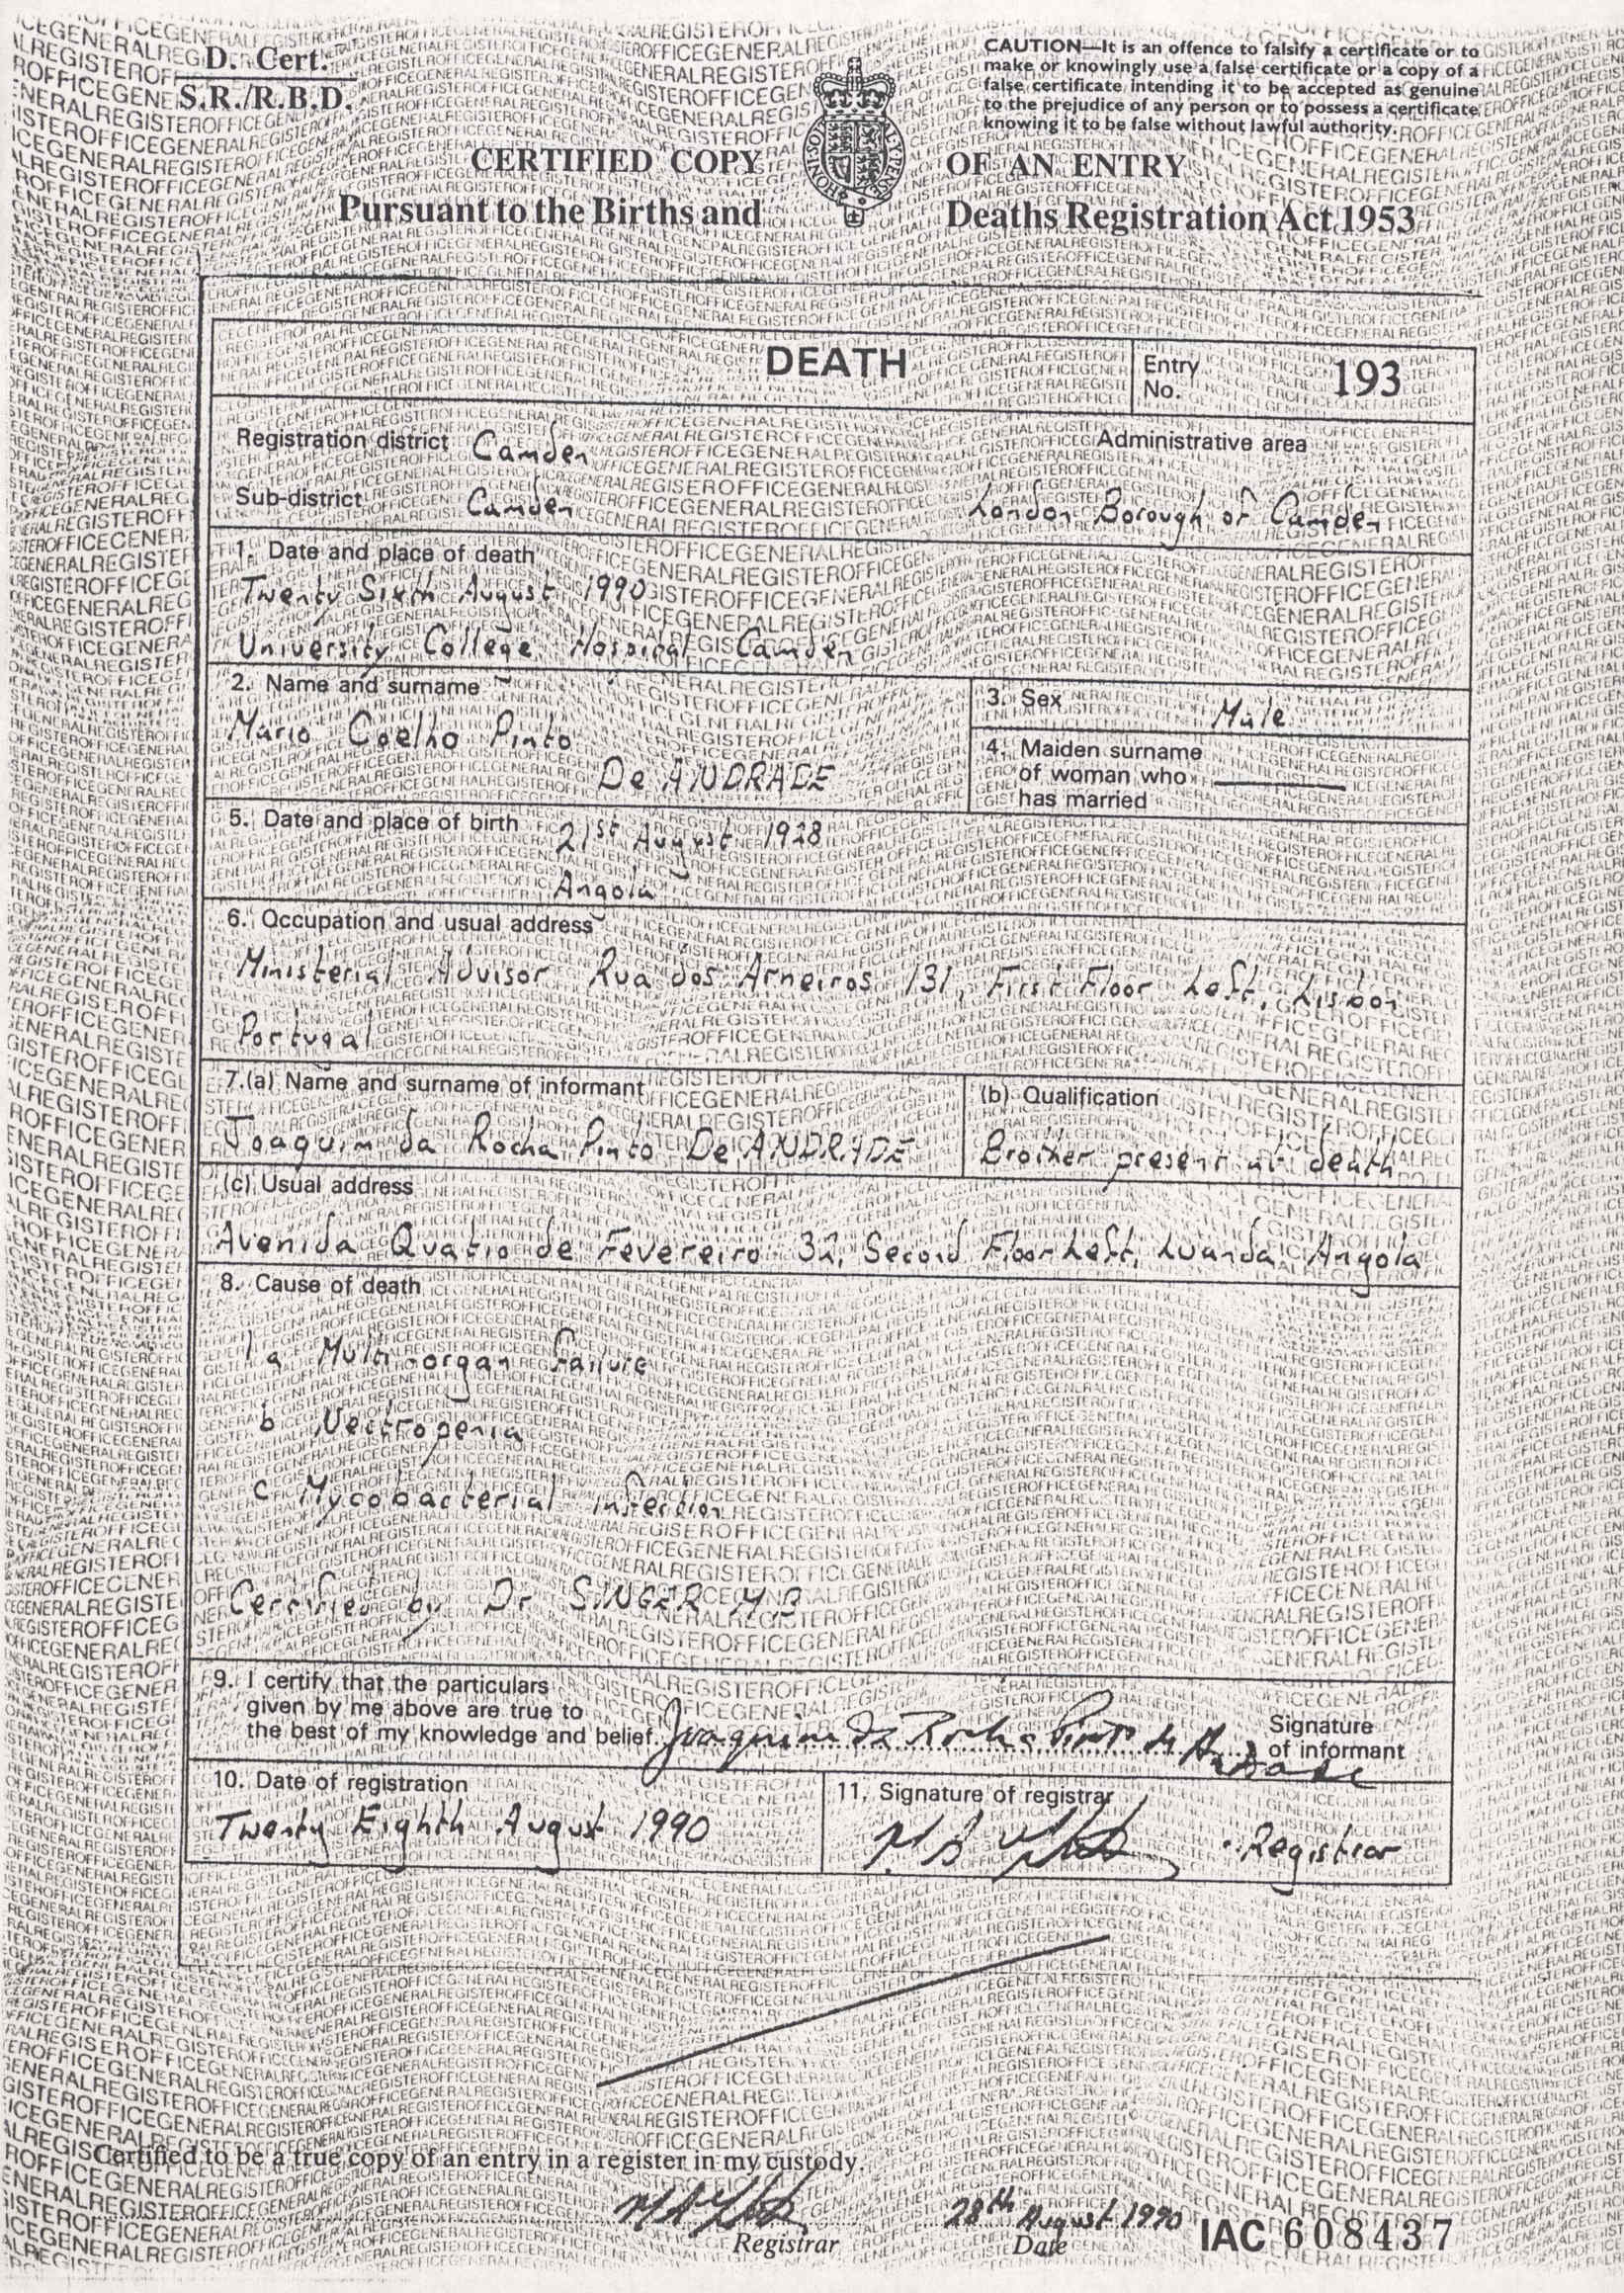 D. Cert.
S.R./R.B.D.
CAUTION—It is an offence to falsify a certificate or to
make or knowingly use a false certificate or a copy of a
false certificate intending it to be accepted as genuine
to the prejudice of any person or to possess a certificate
knowing it to be false without lawful authority.
CERTIFIED COPY OF AN ENTRY
Pursuant to the Births and Deaths Registration Act 1953
DEATH
Entry No. 193
Registration district Camden
Administrative area
Sub-district Camden
London Borough of Camden
1. Date and place of death
Twenty Sixth August 1990
University College Hospital Camden
2. Name and surname
Mario Coelho Pinto
De ANDRADE
3. Sex Male
4. Maiden surname
of woman who
has married
5. Date and place of birth 21st August 1928
Angola
6. Occupation and usual address
Ministerial Advisor Rua dos Arneiros 131, First Floor Left, Lisbon
Portugal
7.(a) Name and surname of informant
Joaquim da Rocha Pinto De ANDRADE
(b) Qualification
Brother present at death
(c) Usual address
Avenida Quatro de Fevereiro 32, Second Floor Left, Luanda Angola
8. Cause of death
I a Multi-organ Failure
b Neutropenia
c Mycobacterial infection
Certified by Dr SINGER MB
9. I certify that the particulars
given by me above are true to
the best of my knowledge and belief. Joaquim da Rocha Pinto de Andrade
Signature
of informant
10. Date of registration
Twenty Eighth August 1990
11. Signature of registrar
Registrar
Certified to be a true copy of an entry in a register in my custody.
28th August 1990
Registrar
Date
IAC 608437